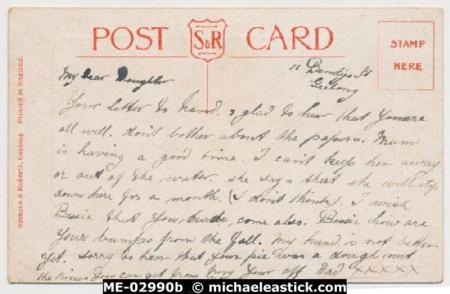 POST S&R CARD
STAMP
HERE
Symons & Roberts, Geelong Printed in England.
11 St
Geelong
My Dear Daughter
Your Letter to hand. glad to hear that you are
all well. don't bother about the papers. Mum
is having a good time. I can't keep her away
or out of the water she says that she will stop
down here for a month. (I don't think) I wish
that you come also. how are
Your bumps from the fall. My hand is not better
yet. Sorry to hear that your pie was a dough nut
the you can get from Your aff. Dad XXXXX
ME-02990b © michaeleastick.com